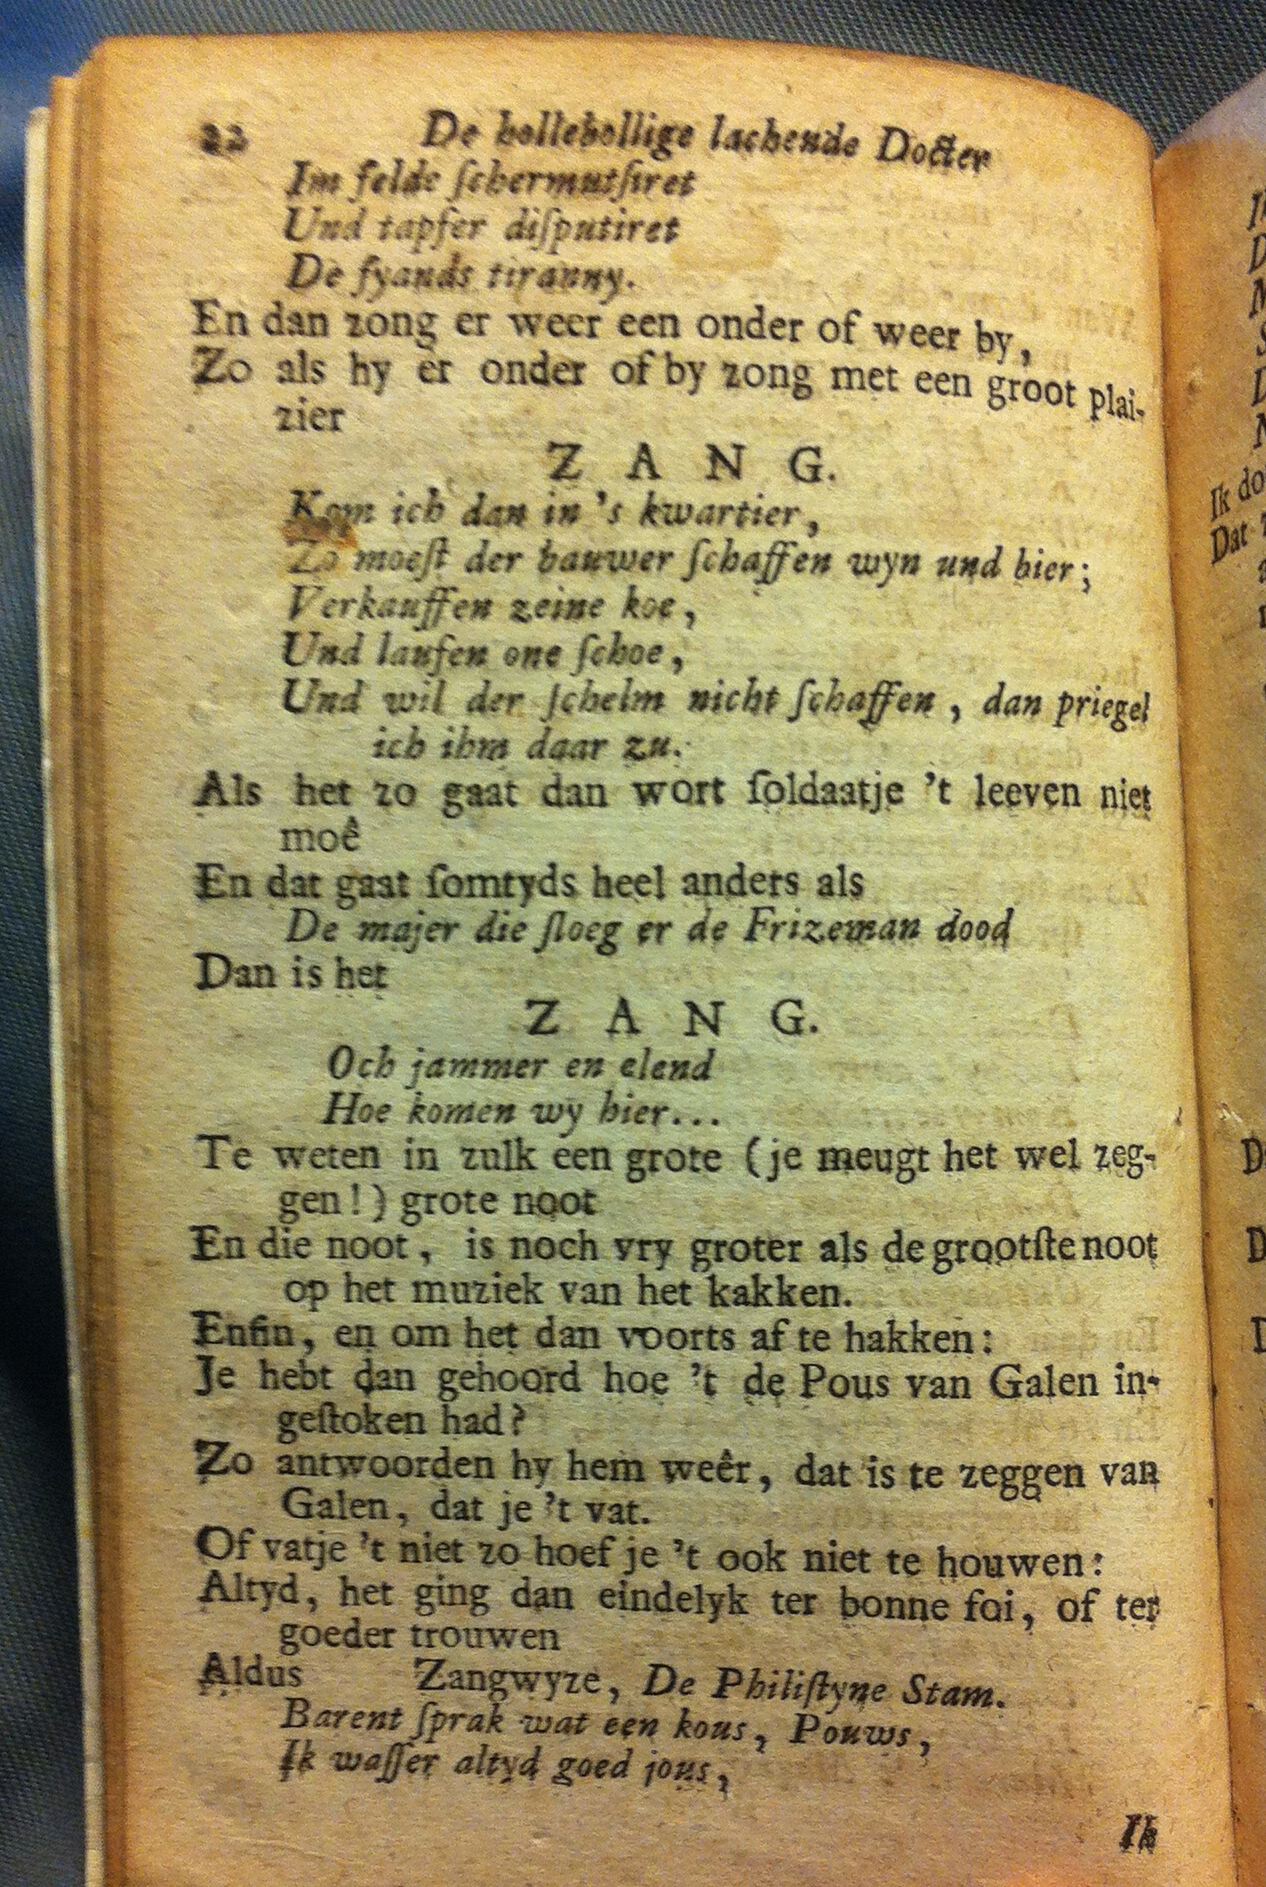 22 De bollebollige lachende Docter
Im felde ſchermutſiret
Und tapfer diſputiret
De fyands tiranny.
En dan zong er weer een onder of weer by,
Zo als hy er onder of by zong met een groot plai-
zier
Z A N G.
Kom ich dan in 's kwartier,
Zo moeſt der bauwer ſchaffen wyn und bier;
Verkauffen zeine koe,
Und laufen one ſchoe,
Und wil der ſchelm nicht ſchaffen, dan priegel
ich ihm daar zu.
Als het zo gaat dan wort ſoldaatje 't leeven niet
moê
En dat gaat ſomtyds heel anders als
De majer die ſloeg er de Frizeman dood
Dan is het
Z A N G.
Och jammer en elend
Hoe komen wy hier...
Te weten in zulk een grote (je meugt het wel zeg-
gen!) grote noot
En die noot, is noch vry groter als de grootſte noot
op het muziek van het kakken.
Enfin, en om het dan voorts af te hakken:
Je hebt dan gehoord hoe 't de Pous van Galen in-
geſtoken had?
Zo antwoorden hy hem weêr, dat is te zeggen van
Galen, dat je 't vat.
Of vatje 't niet zo hoef je 't ook niet te houwen:
Altyd, het ging dan eindelyk ter bonne foi, of ter
goeder trouwen
Aldus Zangwyze, De Philiſtyne Stam.
Barent ſprak wat een kous, Pouws,
Ik waſſer altyd goed jous,
Ik
Ik do
Dat